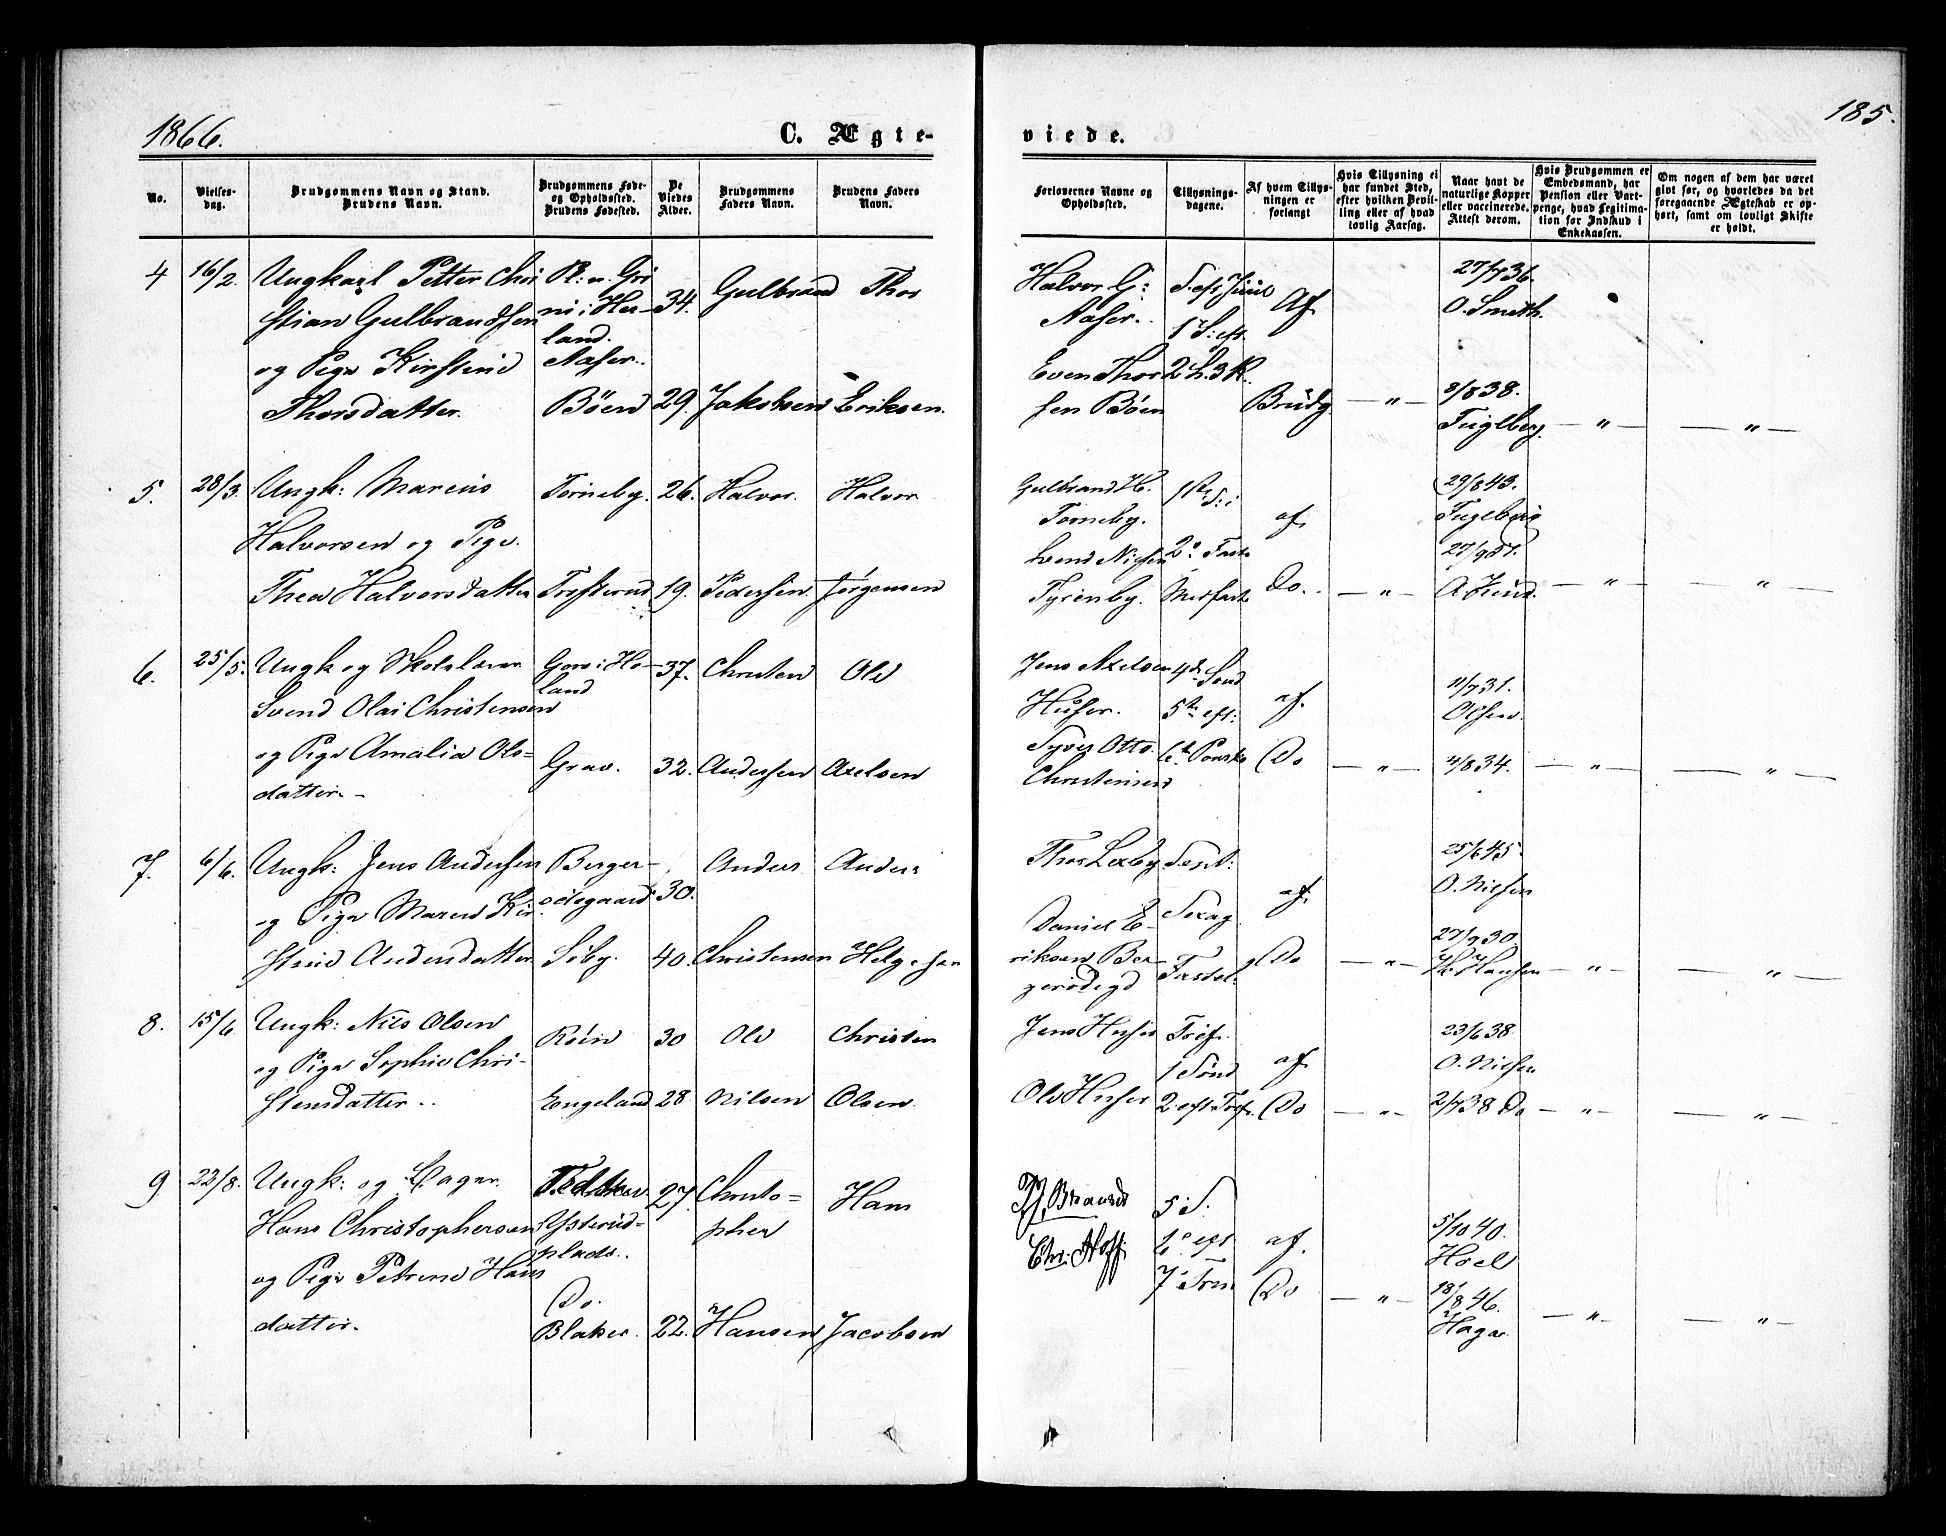 1866.
C. Ægte-
viede.
185.
No.
Vielses-
dag.
Brudgommens Navn og Stand.
Brudens Navn.
Brudgommens Føde-
og Opholdssted.
Brudens Fødested.
De
Viedes
Alder.
Brudgommens
Faders Navn.
Brudens Faders
Navn.
Forlovernes Navne og
Opholdssted.
Tillysnings-
dagene.
Af hvem Tillys-
ningen er
forlangt
Hvis Tillysning ei
har fundet Sted,
efter hvilken Bevil-
ling eller af hvad
lovlig Aarsag.
Naar havt de
naturlige Kopper
eller vaccinerede.
Attest derom.
Hvis Brudgommen er
Embedsmand, har
Pension eller Vart-
penge, hvad Legitima-
tion for Indskud i
Enkekassen.
Om nogen af dem har været
givt før, og hvorledes da det
foregaaende Ægteskab er op-
hørt, samt om lovligt Skifte
er holdt.
4 16/2. Ungkarl Petter Chri
stian Gulbrandsen
og Pige Kirstine
Thorsdatter.
ni i Høl-
land.
Aaser..
Bøen
34.
29.
Gulbrand
Jakobsen
Thor
Eriksen.
Halvor G:
Aaser..
Even Thor
sen Bøen
S. eft. Juul
1 S: eft.
2 h. 3 K.
Af
Brudg. — " —
27/7 36.
O. Smith.
8/8 38.
Fuglberg. — " — — " —
5. 28/3. Ungk: Marius
Halvorsen og Pige
Thea Halvorsdatter
Torneby.
Trosterud
26.
19.
Halvor.
Pedersen.
Halvor
Jørgensen
Gulbrand H.
Torneby.
Nielsen
Tyrenby.
af.
Do.. — " —
29/8 43.
Fugleberg
— " — — " —
6. 25/5. Ungk og Skolelærer
Svend Olai Christensen
og Pige Amalia Ols-
datter. -
land
Grav.
37.
32.
Christen
Andersen
Ole
Axelsen
Jens Axelsen
Huser.
Syver Otto
Christensen
4de Sønd
5te eft:
af.
Do — " —
11/7 31.
Olsen.
4/8 34. — " — — " —
7. 6/6. Ungk: Jens Andersen
og Pige Maren Kir
stine Andersdatter
Berger-
ødegaard
Søby.
30.
40.
Anders
Christensen
Anders
Helgesen
Thor Lexby
Daniel E-
riksen Ber-
gerødegd
Sept:
Sexag.
Fastel.
af.
Do — " —
25/6 45.
O. Nilsen
27/9 30.
Hansen — " — — " —
8. 15/6. Ungk: Nils Olsen
og Pige Sophie Chri-
stensdatter..
Røen
Engeland
30
28
Ole
Nilsen
Christen
Olsen.
Jens Huser
Ole Huser
1 Sønd
af.
Do — " —
23/6 38.
O. Nilsen
2/7 38 Do — " — — " —
9 22/8. Ungk: og Bager
Hans Christophersen
og Pige Petrine Hans
datter.
Ysterud-
plads..
Do.
Blaker.
27.
22.
Christo=
pher
Hansen
Hans
Jacobsen
Chr. Hoff
5. S.
6. eft
7.
af.
Do — " —
5/10 40.
Hoel
18/8 46.
Hagen — " — — " —